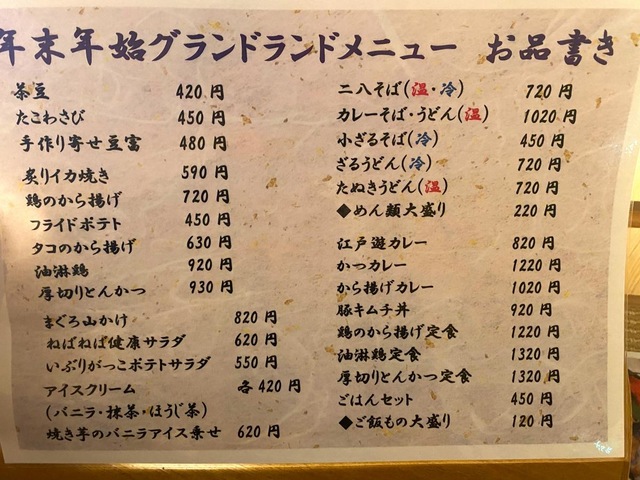 年末年始グランドランドメニュー お品書き
茶豆 420 円
たこわさび 450 円
手作り寄せ豆富 480 円
炙りイカ焼き 590 円
鶏のから揚げ 720 円
フライドポテト 450 円
タコのから揚げ 630 円
油淋鶏 920 円
厚切りとんかつ 930 円
まぐろ山かけ 820 円
ねばねば健康サラダ 620 円
いぶりがっこポテトサラダ 550 円
アイスクリーム 各 420 円
(バニラ・抹茶・ほうじ茶)
焼き芋のバニラアイス乗せ 620 円
二八そば(温・冷) 720 円
カレーそば・うどん(温) 1020 円
小ざるそば(冷) 450 円
ざるうどん(冷) 720 円
たぬきうどん(温) 720 円
◆めん類大盛り 220 円
江戸遊カレー 820 円
かつカレー 1220 円
から揚げカレー 1020 円
豚キムチ丼 920 円
鶏のから揚げ定食 1220 円
油淋鶏定食 1320 円
厚切りとんかつ定食 1320 円
ごはんセット 450 円
◆ご飯もの大盛り 120 円